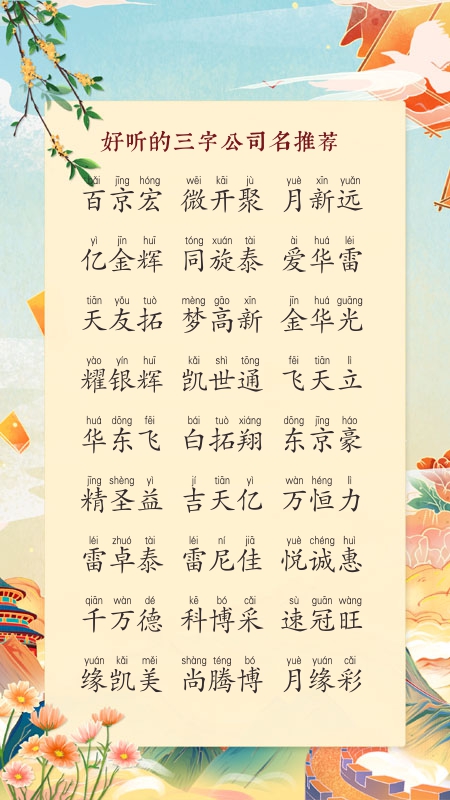 好听的三字公司名推荐
bǎi jīng hóng wēi kāi jù yuè xīn yuǎn
百京宏 微开聚 月新远
yì jīn huī tóng xuán tài ài huá léi
亿金辉 同旋泰 爱华雷
tiān yǒu tuò mèng gāo xīn jīn huá guāng
天友拓 梦高新 金华光
yào yín huī kǎi shì tōng fēi tiān lì
耀银辉 凯世通 飞天立
huá dōng fēi bái tuò xiáng dōng jīng háo
华东飞 白拓翔 东京豪
jīng shèng yì jí tiān yì wàn héng lì
精圣益 吉天亿 万恒力
léi zhuó tài léi ní jiā yuè chéng huì
雷卓泰 雷尼佳 悦诚惠
qiān wàn dé kē bó cǎi sù guān wàng
千万德 科博采 速冠旺
yuán kǎi měi shàng téng bó yuè yuán cǎi
缘凯美 尚腾博 月缘彩